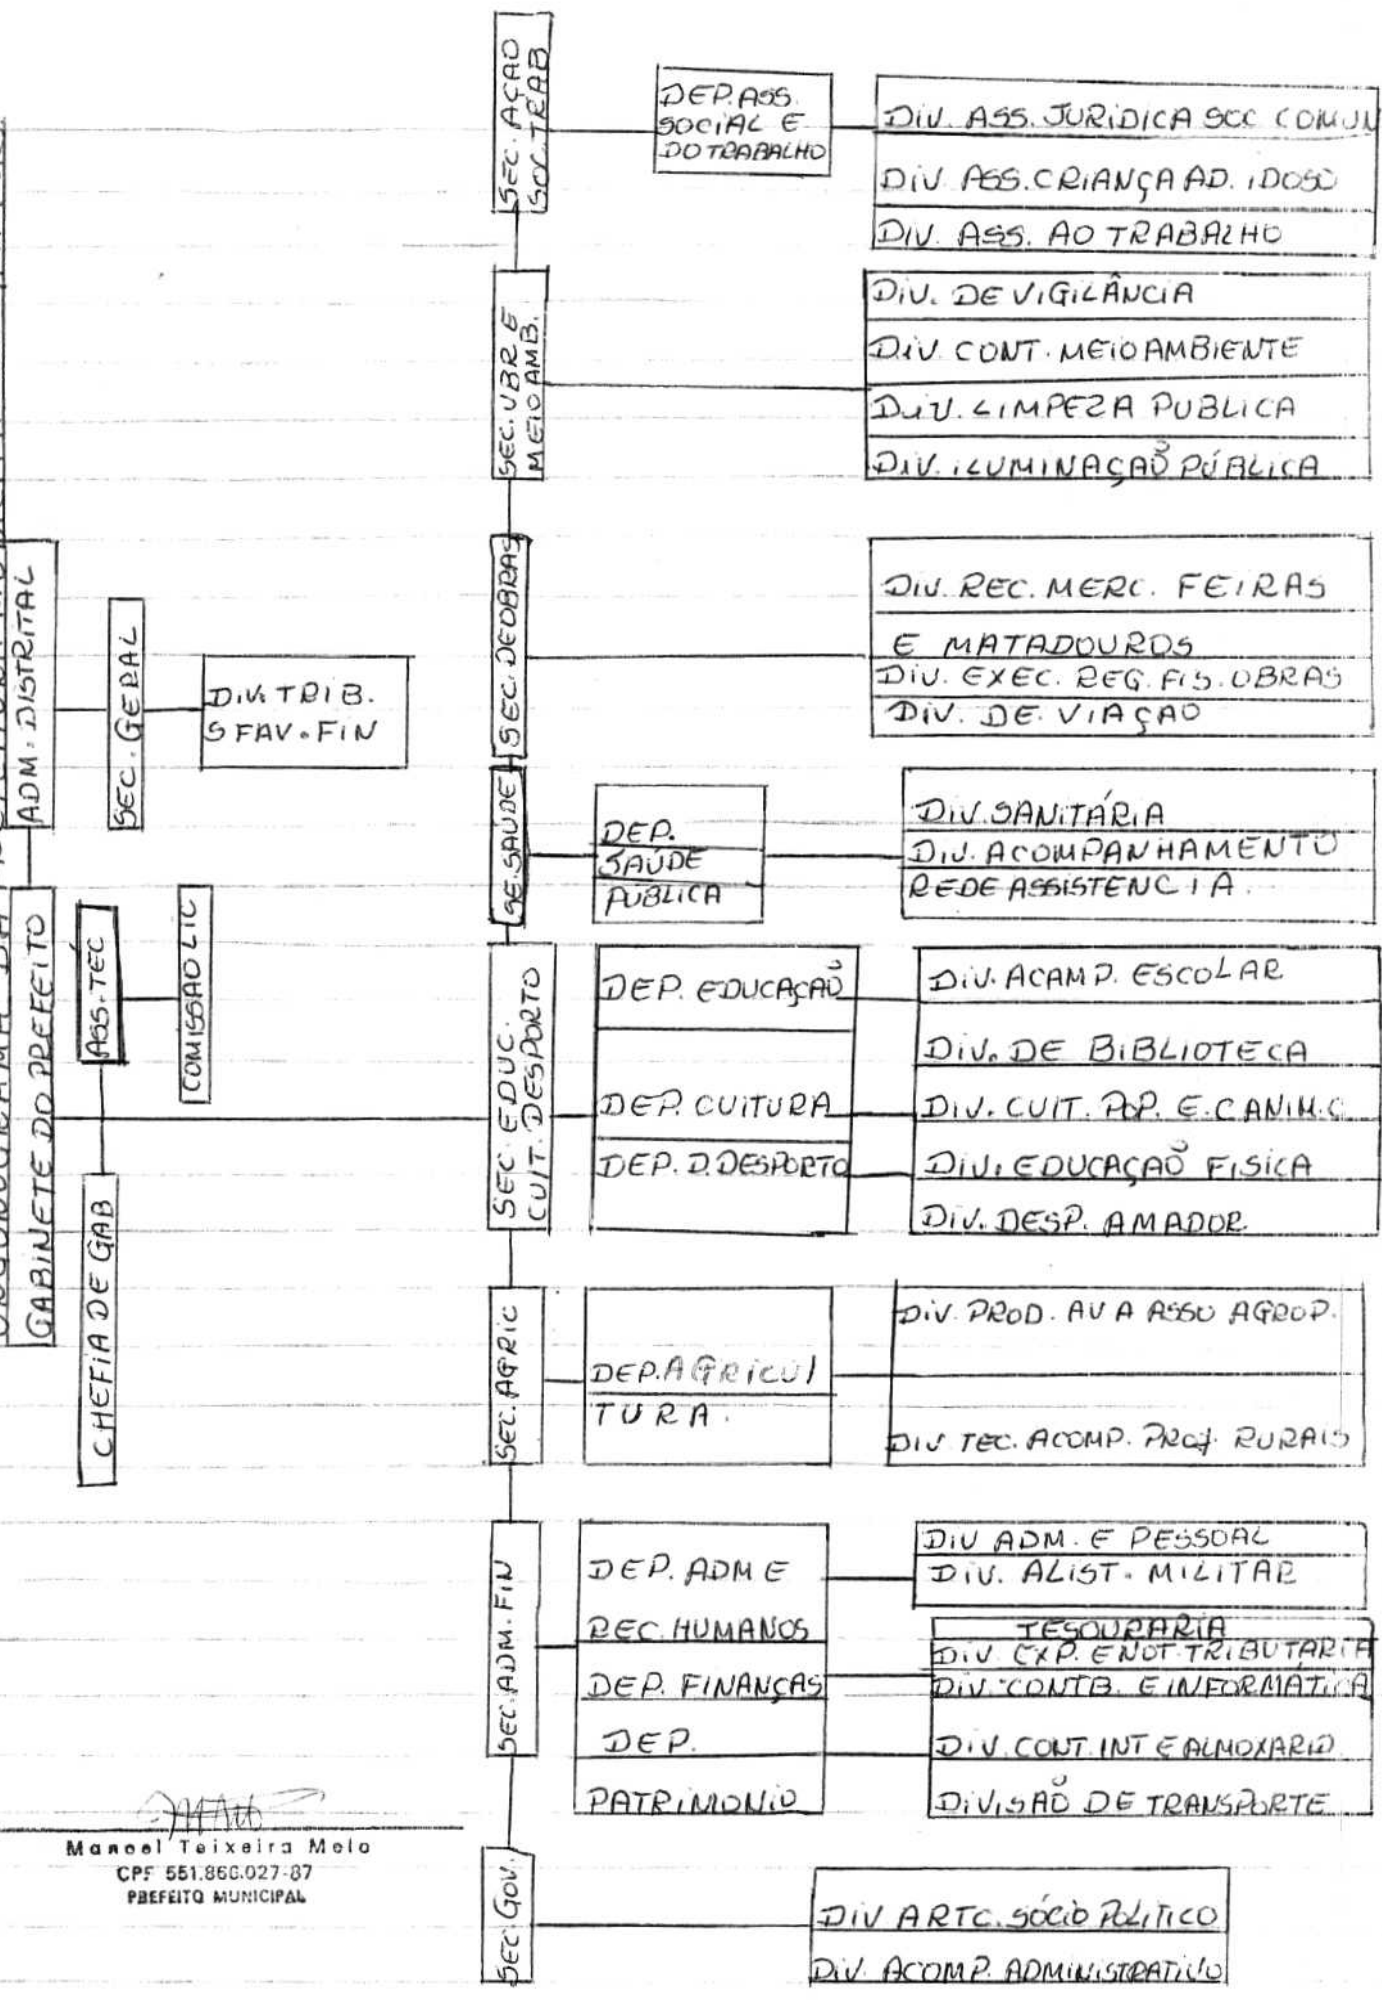 SEC. AÇÃO
SOC. TRAB
DEP. ASS.
SOCIAL E
DO TRABALHO
DIV. ASS. JURIDICA SOC COMUN
DIV. ASS. CRIANÇA AD. IDOSO
DIV. ASS. AO TRABALHO
SEC. UBR E
MEIO AMB.
DIV. DE VIGILÂNCIA
DIV. CONT. MEIO AMBIENTE
DIV. LIMPEZA PUBLICA
DIV. ILUMINAÇÃO PÚBLICA
SEC. DE OBRAS
DIV. REC. MERC. FEIRAS
E MATADOUROS
DIV. EXEC. REG. FIS. OBRAS
DIV. DE VIAÇÃO
ADM. DISTRITAL
SEC. GERAL
DIV. TRIB.
S FAV. FIN
SE. SAÚDE
DEP.
SAÚDE
PÚBLICA
DIV. SANITÁRIA
DIV. ACOMPANHAMENTO
REDE ASSISTENCIA.
GABINETE DO PREFEITO
ASS. TEC
COMISSÃO LIC
CHEFIA DE GAB
SEC. EDUC.
CULT. DESPORTO
DEP. EDUCAÇÃO
DEP. CULTURA
DEP. D. DESPORTO
DIV. ACAMP. ESCOLAR
DIV. DE BIBLIOTECA
DIV. CULT. POP. E. C ANIM. C
DIV. EDUCAÇÃO FISICA
DIV. DESP. AMADOR
SEC. AGRIC
DEP. AGRICUL
TURA.
DIV. PROD. AV A ASSO AGROP.
DIV TEC. ACOMP. PROJ. RURAIS
SEC. ADM. FIN
DEP. ADM E
REC. HUMANOS
DEP. FINANÇAS
DEP.
PATRIMONIO
DIV ADM. E PESSOAL
DIV. ALIST. MILITAR
TESOURARIA
DIV. EXP. E NOT. TRIBUTARIA
DIV. CONTB. E INFORMÁTICA
DIV. CONT. INT E ALMOXARID
DIVISÃO DE TRANSPORTE
SEC. GOV.
DIV ARTC. SÓCIO POLITICO
DIV. ACOMP. ADMINISTRATIVO
Manoel Teixeira Melo
CPF 551.866.027-87
PREFEITO MUNICIPAL